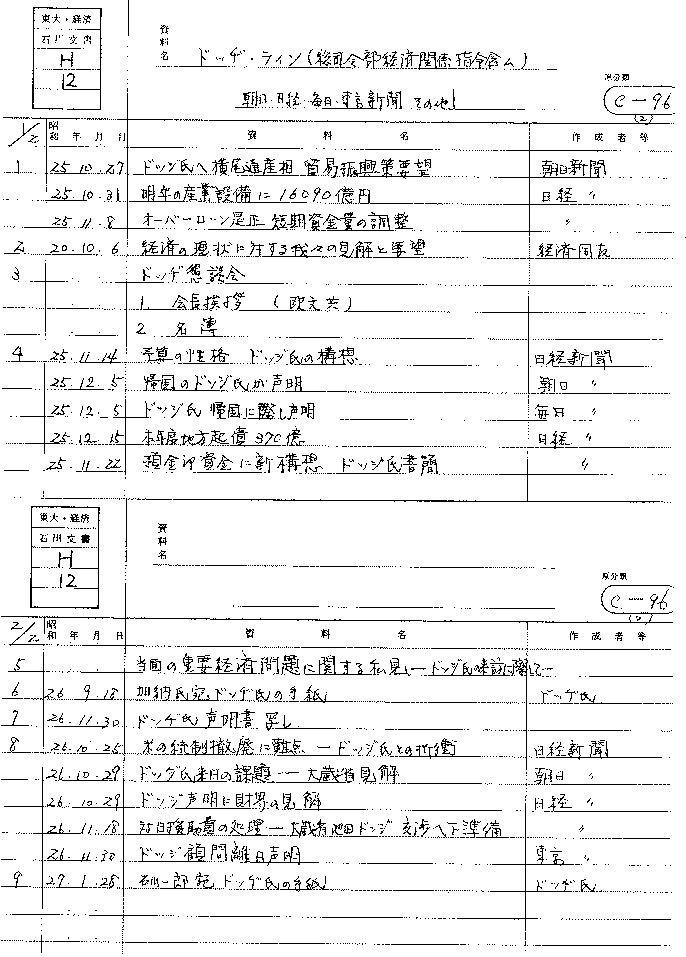 東大・経済
石川文書
H
12
資料名 ドッヂ・ライン(総司令部経済関係指令含ム)
朝日・日経・毎日・東京新聞 その他
原分類
C-96
(2)
1/2 昭和 年 月 日 資 料 名 作 成 者 等
1 25.10.27 ドッジ氏へ横尾通産相 貿易振興策要望 朝日新聞
25.10.31 明年の産業設備に16090億円 日経 〃
25.11.8 オーバーローン是正 短期資金量の調整 〃
2 20.10.6 経済の現状に対する我々の見解と要望 経済同友
3 ドッヂ懇談会
1. 会長挨拶 (欧文共)
2 名簿
4 25.11.14 予算の性格 ドッジ氏の構想 日経新聞
25.12.5 帰国のドッジ氏が声明 朝日 〃
25.12.5 ドッジ氏 帰国に際し声明 毎日 〃
25.12.15 本年度地方起債370億 日経 〃
25.11.22 預金部資金に新構想 ドッジ氏書簡 〃
東大・経済
石川文書
H
12
資料名
原分類
C-96
(2)
2/2 昭和 年 月 日 資 料 名 作 成 者 等
5 当面の重要経済問題に関する私見 ードッジ氏の来訪に際してー
6 26.9.18 加納氏宛ドッヂ氏の手紙 ドッヂ氏
7 26.11.30 ドッヂ氏 声明書 写し
8 26.10.25 米の統制撤廃に難点 ードッジ氏との折衝 日経新聞
26.10.29 ドッヂ氏来日の課題 ー大蔵省見解 朝日 〃
26.10.29 ドッジ声明に財界の見解 日経 〃
26.11.18 対日援助費の処理ー大蔵省池田ドッジ交渉へ下準備 〃
26.11.30 ドッジ顧問離日声明 東京 〃
9 27.1.28 石川一郎宛 ドッヂ氏の手紙 ドッヂ氏